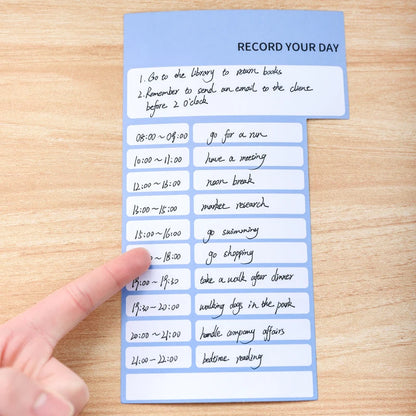 RECORD YOUR DAY
1. Go to the library to return books
2. Remember to send an email to the client
before 2 o'clock
08:00~09:00 go for a run
10:00~11:00 have a meeting
12:00~13:00 noon break
13:00~15:00 market research
15:00~16:00 go swimming
~18:00 go shopping
19:00~19:30 take a walk after dinner
19:30~20:00 walking dogs in the park
20:00~21:00 handle company affairs
21:00~22:00 bedtime reading